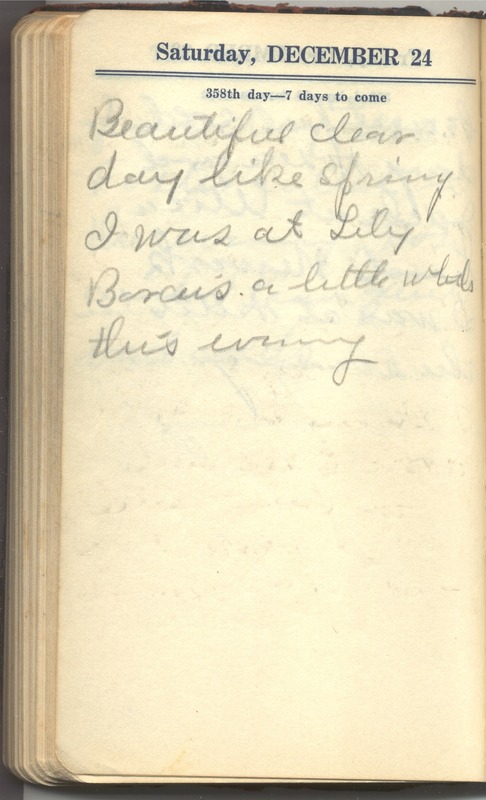 Saturday, DECEMBER 24
358th day—7 days to come
Beautiful clear
day like spring
I was at Lily
a little while
this evening